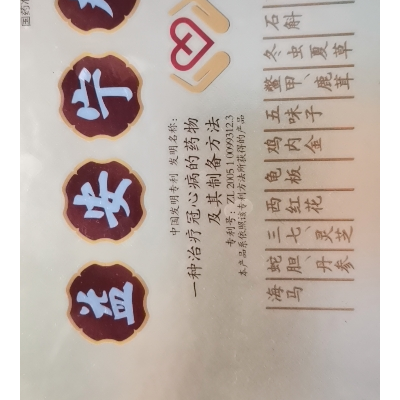 国药准
益安宁
中国发明专利 发明名称:
一种治疗冠心病的药物
及其制备方法
专利号: ZL 2005 1 0099312.3
本产品系依照该专利方法所获得的产品
海马
蛇胆、丹参
三七、灵芝
西红花
龟板
鸡内金
五味子
鳖甲、鹿茸
冬虫夏草
石斛